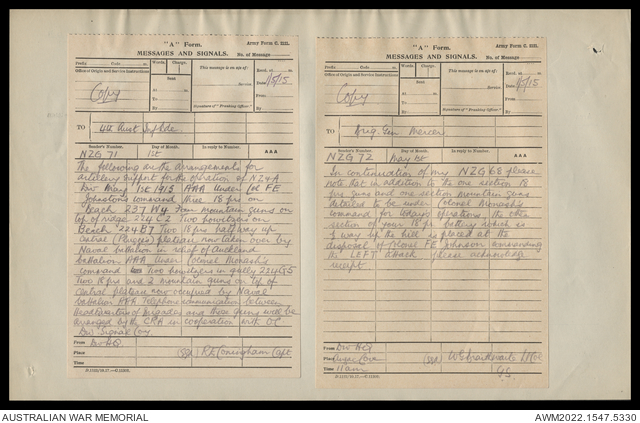 "A" Form.
Army Form C. 2121.
MESSAGES AND SIGNALS.
No. of Message
Prefix Code m.
Office of Origin and Service Instructions
Words. Charge.
This message is on a/c of:
Recd. at m.
Copy
Sent
At m.
To
By
Service.
Date 1/5/15
From
By
(Signature of "Franking Officer")
TO 4th Aust Inf Bde
Sender's Number. Day of Month. In reply to Number. AAA
NZG 71 1st
The following are the arrangements for
artillery support for the operation of NZ & A
Div May 1st 1915 AAA Under Col FE
Johnstons command three 18 prs on
beach 237 W4 Four mountain guns on
top of ridge 224 C2 Two howitzers on
Beach 224 B7 Two 18 prs half way up
central (Pluges) plateau now taken over by
Naval battalion in relief of Auckland
battalion AAA Under Colonel Monash's
command Two howitzers in gully 224 G5
Two 18 prs and 2 mountain guns on top of
central plateau now occupied by Naval
battalion AAA Telephone communication between
Headquarters of Brigades and these guns will be
arranged by the CRA in cooperation with OC
Div Signal Coy.
From Div HQ
Place
Time
(Sgd) R E Coningham Capt
"A" Form.
Army Form C. 2121.
MESSAGES AND SIGNALS.
No. of Message
Prefix Code m.
Office of Origin and Service Instructions
Words. Charge.
This message is on a/c of:
Recd. at m.
Copy
Sent
At m.
To
By
Service.
Date 1/5/15
From
By
(Signature of "Franking Officer")
TO Brig Gen Mercer
Sender's Number. Day of Month. In reply to Number. AAA
NZG 72 May 1st
In continuation of my NZG 68 please
note that in addition to the one section 18
prs guns and one section mountain guns
detailed to be under Colonel Monash's
command for todays operations the other
section of your 18 pr battery which is
½ way up the hill is placed at the
disposal of Colonel FE Johnson commanding
the LEFT attack please acknowledge
receipt
From Div HQ
Place Anzac Cove
Time 11am
(Sgd) W G Braithwaite Lt Col
GS
AUSTRALIAN WAR MEMORIAL
AWM2022.1547.5330